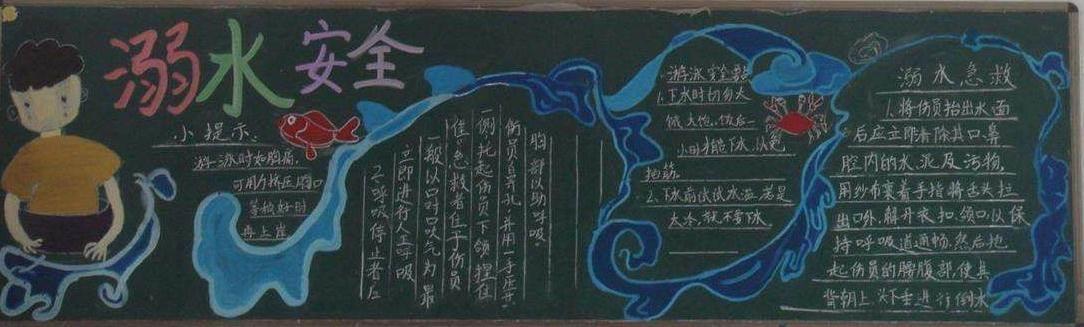 溺水安全
小提示:
游泳时如胸痛,
可用力挤压胸口
等稍好时
再上岸
2.呼吸停止者应
立即进行人工呼吸
一般以口对口吹气为最
佳。急救者位于伤员一
侧,托起伤员下颌,捏住
伤员鼻孔,并用一手压其
胸部以助呼吸。
游泳安全要点
1.下水时切勿太
饿、太饱。饭后一
小时才能下水,以免
抽筋。
2.下水前试试水温,若是
太冷,就不要下水
溺水急救
1.将伤员抬出水面
后,应立即清除其口、鼻
腔内的水、泥及污物,
用纱布裹着手指将舌头拉
出口外,解开衣扣、领口,以保
持呼吸道通畅,然后抱
起伤员的腰腹部,使其
背朝上、头下垂进行倒水